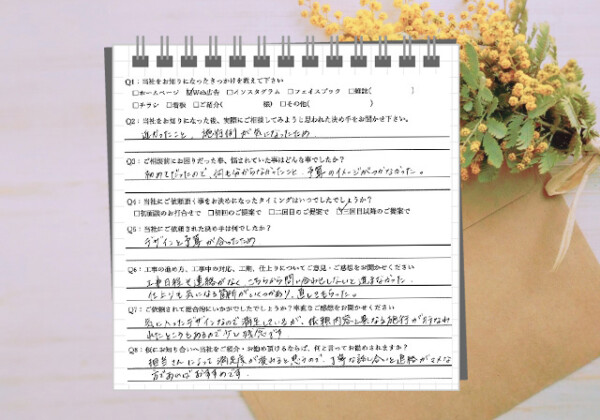 Q1：当社をお知りになったきっかけを教えて下さい
□ホームページ ☑Web広告 □インスタグラム □フェイスブック □雑誌( )
□チラシ □看板 □ご紹介( 様) □その他( )
Q2：当社をお知りになった後、実際にご相談してみようと思われた決め手をお聞かせ下さい。
近かったこと、施行例が気になったため
Q3：ご相談前にお困りだった事、悩されていた事はどんな事でしたか？
初めてだったので、何も分からなかったこと、予算のイメージがつかなかった。
Q4：当社にご依頼頂く事をお決めになったタイミングはいつでしたでしょうか？
□初面談のお打合せで □初回のご提案で □二回目のご提案で ☑三回目以降のご提案で
Q5：当社にご依頼された決め手は何でしたか？
デザインと予算が合ったため
Q6：工事の進め方、工事中の対応、工期、仕上りについてご意見・ご感想をお聞かせください
工事日程も連絡がなく、こちらから問い合わせしないと進まなかった
仕上りも気になる箇所がいくつかあり、直してもらった。
Q7：ご依頼されて総合的にいかがでしたでしょうか？率直なご感想をお聞かせください
気に入ったデザインなので満足しているが、依頼内容と異なる施行が行なわ
れたところもあるので少し残念です
Q8：仮にお知り合いへ当社をご紹介・お勧め頂けるならば、何と言ってお勧めされますか？
担当さんによって満足度が変わると思うので、丁寧な話し合いと連絡がマメな
方であればおすすめです。